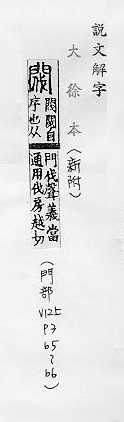 說文解字
大徐本(新附)
閥閱自
序也从
門伐聲義當
通用伐房越切
(門部
V12上
P3
b5
~
b6)